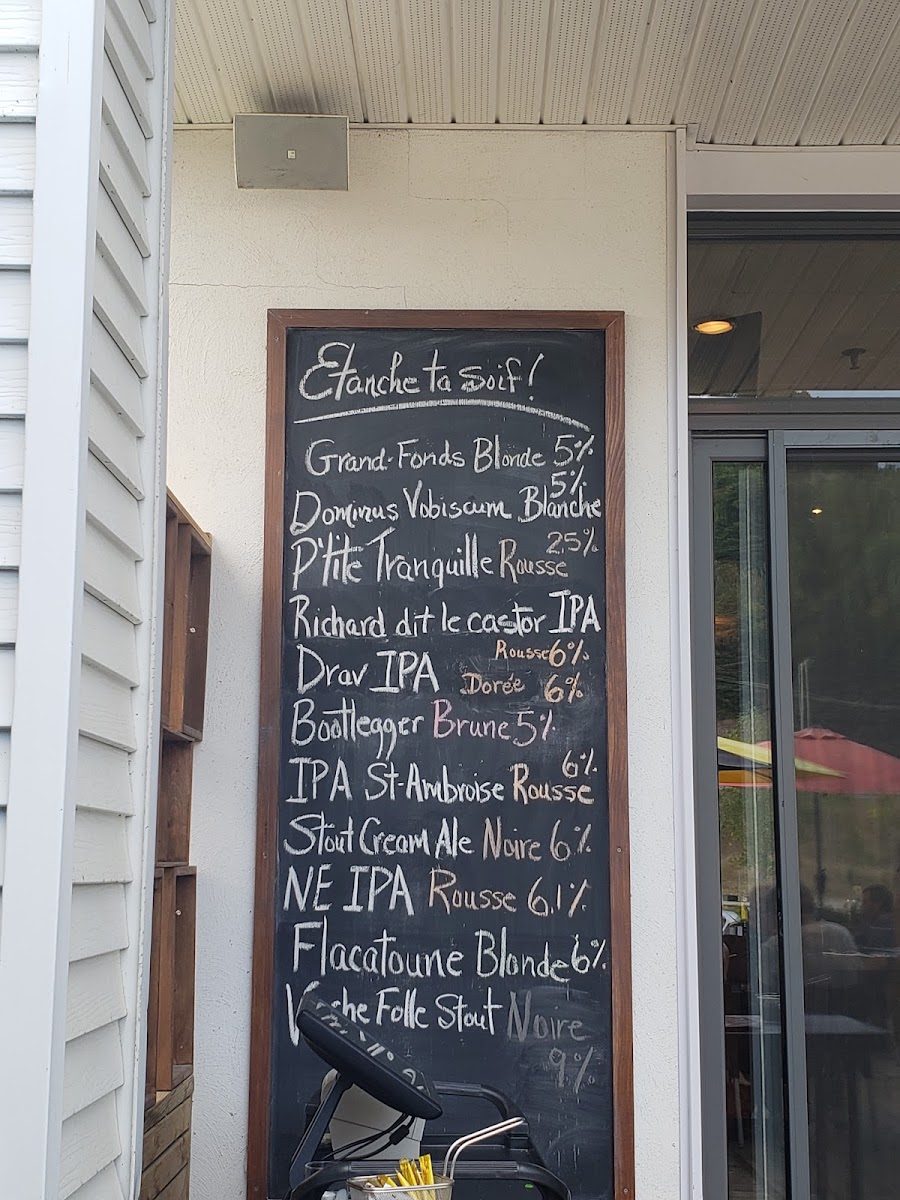 Etanche ta soif!
Grand-Fonds Blonde 5%
5%
Dominus Vobiscum Blanche
25%
P'tite Tranquille Rousse
Richard dit le castor IPA
Rousse 6%
Drav IPA Dorée 6%
Bootlegger Brune 5%
6%
IPA St-Ambroise Rousse
Stout Cream Ale Noire 6%
NE IPA Rousse 6.1%
Flacatoune Blonde 6%
Folle Stout Noire
9%